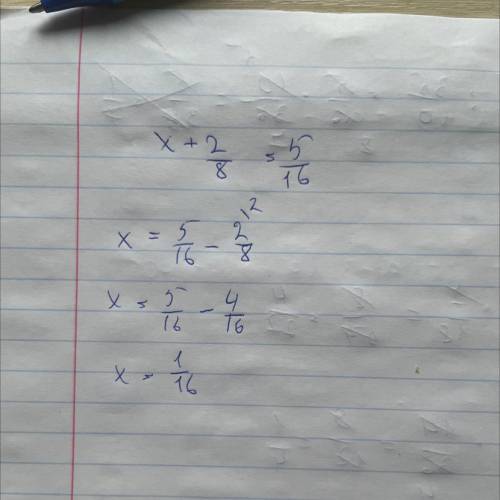 x + 2/8 = 5/16
x = 5/16 - 2/8 \2
x = 5/16 - 4/16
x = 1/16